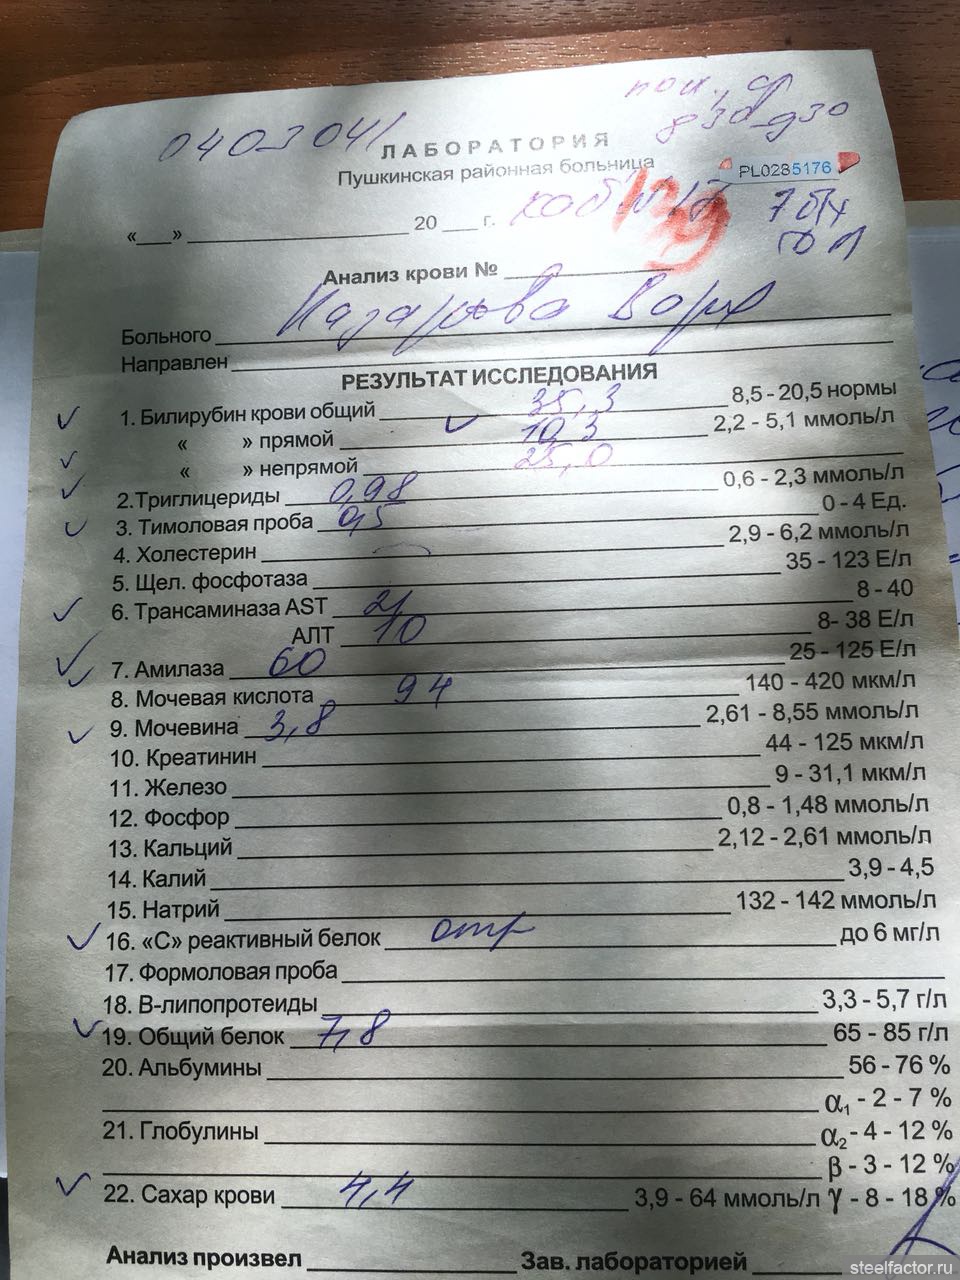 пон, ср
8³⁰-9³⁰
0403041
ЛАБОРАТОРИЯ
Пушкинская районная больница
PL0285176
«___» ____________ 20 ___ г. каб №17 139 7
Анализ крови № ________
Больного Назарова Варя
Направлен
РЕЗУЛЬТАТ ИССЛЕДОВАНИЯ
1. Билирубин крови общий 35,3 8,5 - 20,5 нормы
« » прямой 10,3 2,2 - 5,1 ммоль/л
« » непрямой 25,0
2.Триглицериды 0,98 0,6 - 2,3 ммоль/л
3. Тимоловая проба 0,5 0 - 4 Ед.
4. Холестерин 2,9 - 6,2 ммоль/л
5. Щел. фосфотаза 35 - 123 Е/л
6. Трансаминаза AST 21 8 - 40
АЛТ 10 8- 38 Е/л
7. Амилаза 60 25 - 125 Е/л
8. Мочевая кислота 94 140 - 420 мкм/л
9. Мочевина 3,8 2,61 - 8,55 ммоль/л
10. Креатинин 44 - 125 мкм/л
11. Железо 9 - 31,1 мкм/л
12. Фосфор 0,8 - 1,48 ммоль/л
13. Кальций 2,12 - 2,61 ммоль/л
14. Калий 3,9 - 4,5
15. Натрий 132 - 142 ммоль/л
16. «С» реактивный белок отр до 6 мг/л
17. Формоловая проба
18. В-липопротеиды 3,3 - 5,7 г/л
19. Общий белок 7,8 65 - 85 г/л
20. Альбумины 56 - 76 %
α₁ - 2 - 7 %
21. Глобулины α₂ - 4 - 12 %
β - 3 - 12 %
22. Сахар крови 4,4 3,9 - 64 ммоль/л γ - 8 - 18 %
Анализ произвел ________ Зав. лабораторией
steelfactor.ru